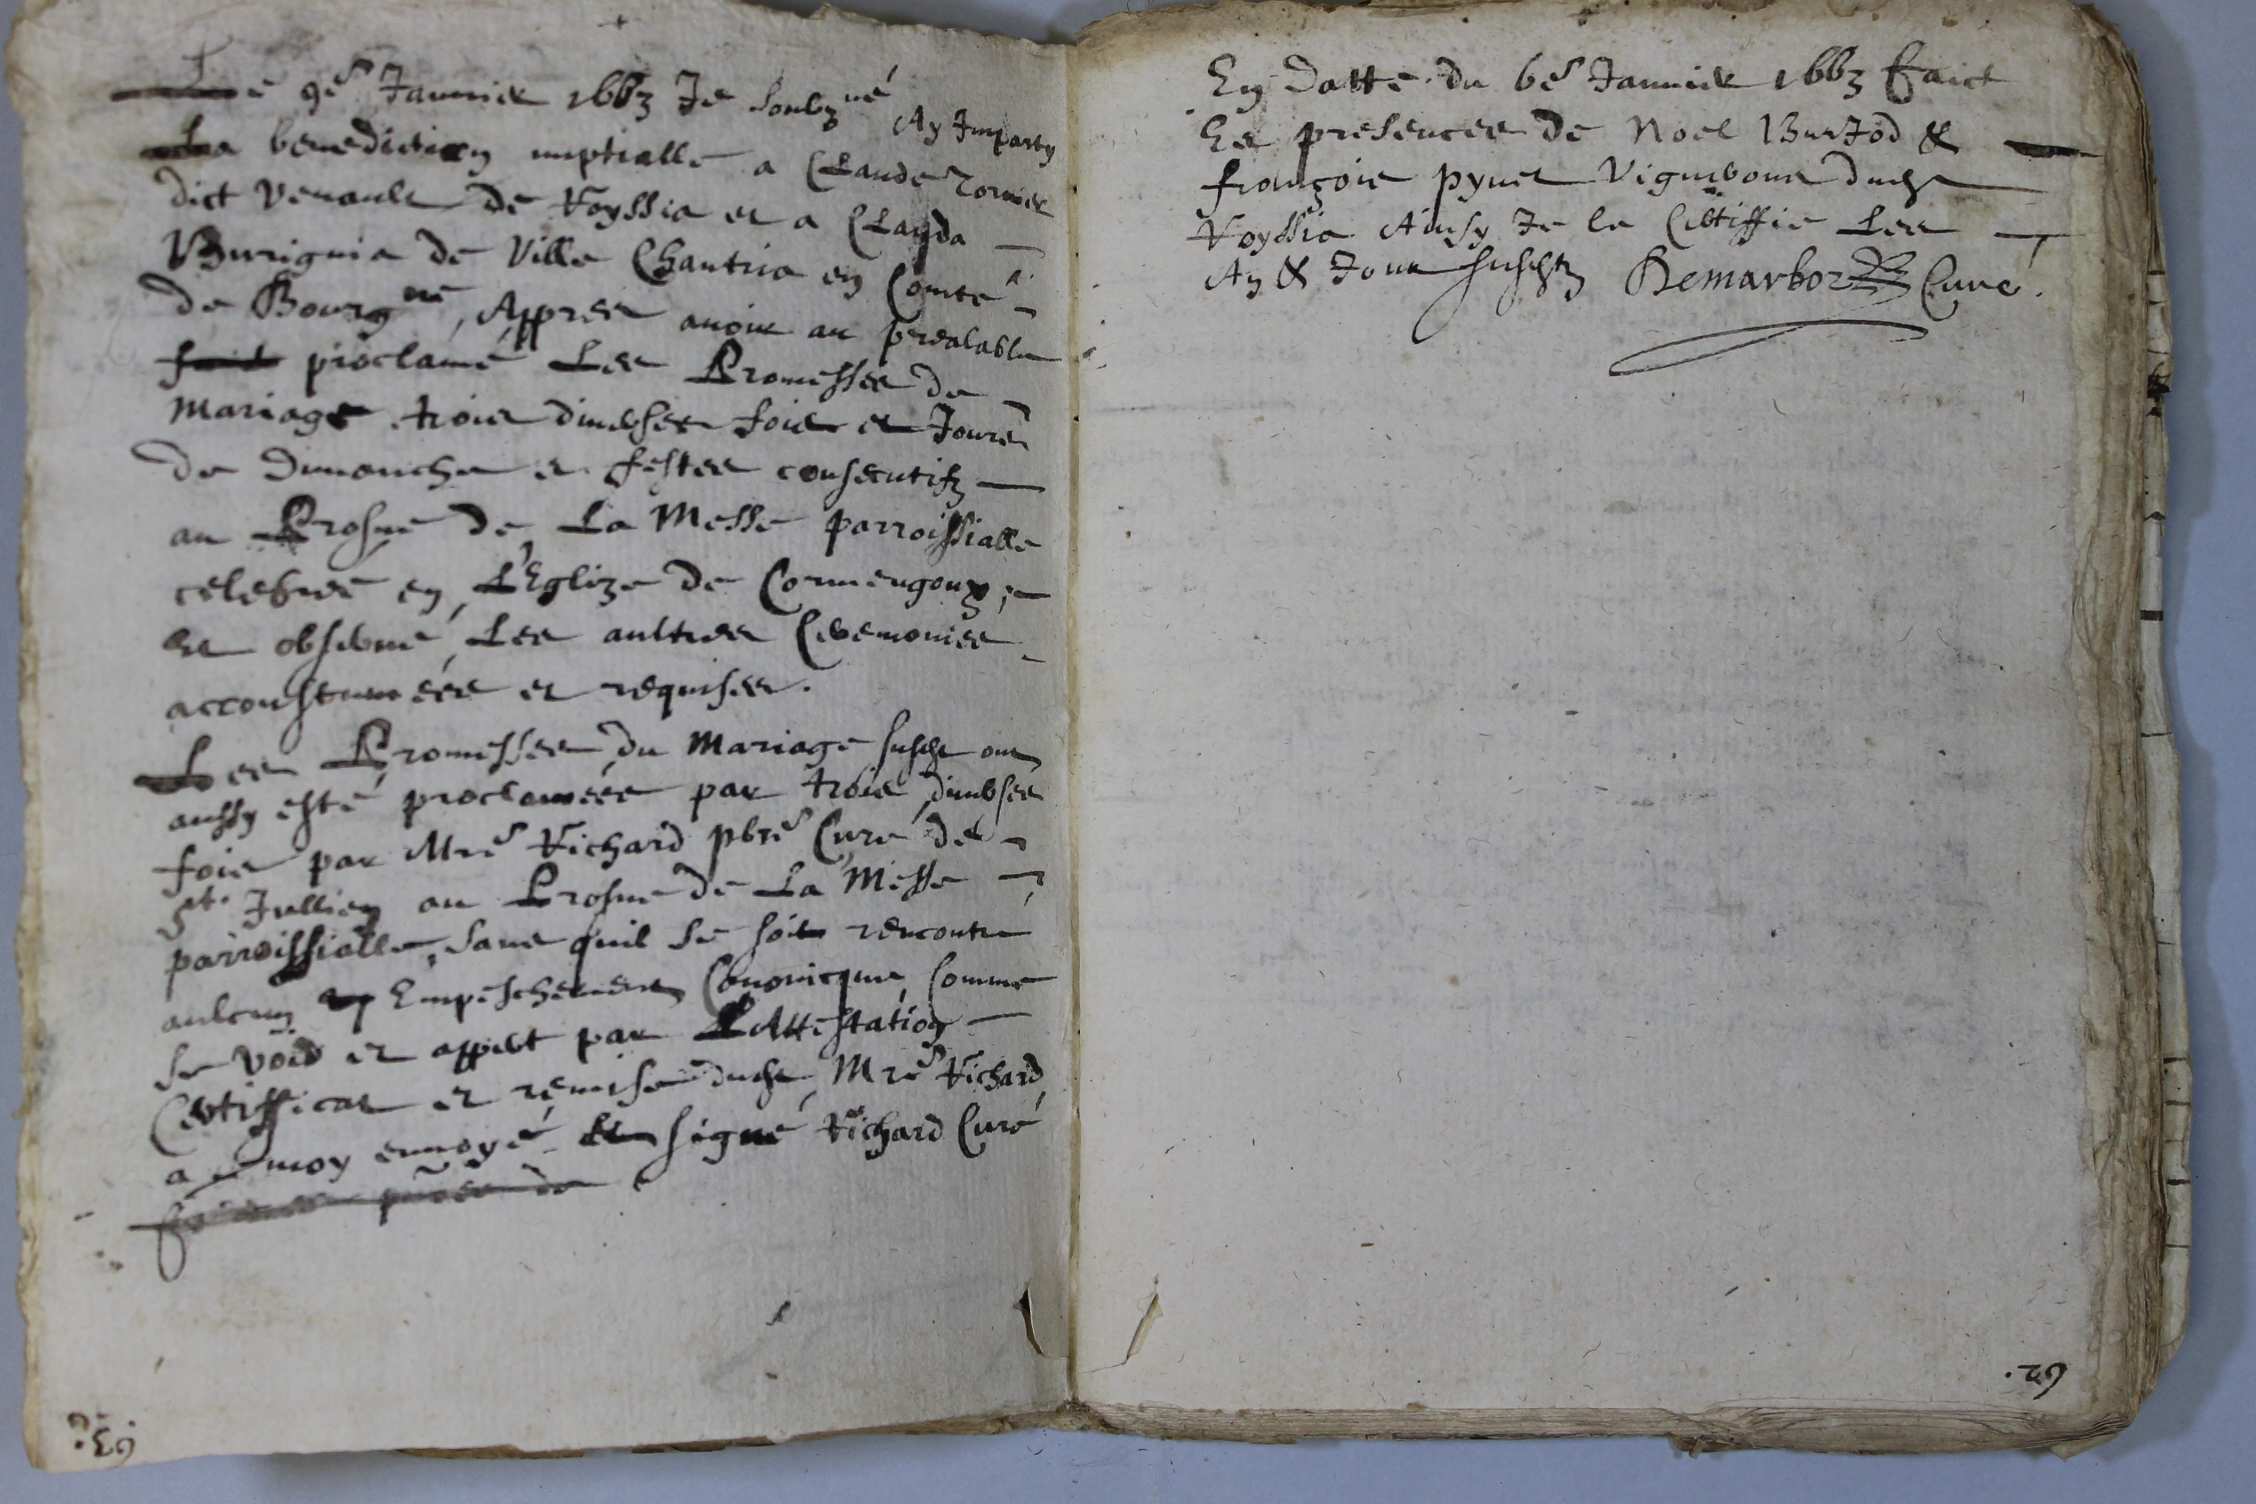 Le 9e Januier 1663 Je soubzné Ay Imparty
La benediction nuptialle a Claude Tornier
dict venault de Voyssia et a Clauda
Burignia de Ville Chantria en Comté
de Bourgne, Appres auoir au prealable
proclamé Les Promesses de
Mariage trois diuerses fois et Jours
de dimanche et festes consecutifz
au Prosne de La Messe parroissialle
celebrée en L'Eglize de Cormengoux,
Et obserué Les aultres Ceremonies
accoustumées et requises.
Les Promesses du Mariage susdt ont
aussy esté proclamées par trois diuerses
fois par Mre Richard pbre Curé de
St. Jullien au Prosne de La Messe
parroissialle, sans quil se soit rencontré
aulcun Empeschement Canonicque Comme
se void et appert par L'Attestation
Certifficat et remise dudt Mre Richard
a moy enuoyé signé Richard Curé
En datte du 6e Januier 1663 Faict
Es presences de Noel Burjod &
françois pynet Vignerons dudt
Voyssia Ainsy Je le Certiffie Les
An & Jour susdtz Demarbor Curé.
63
62.